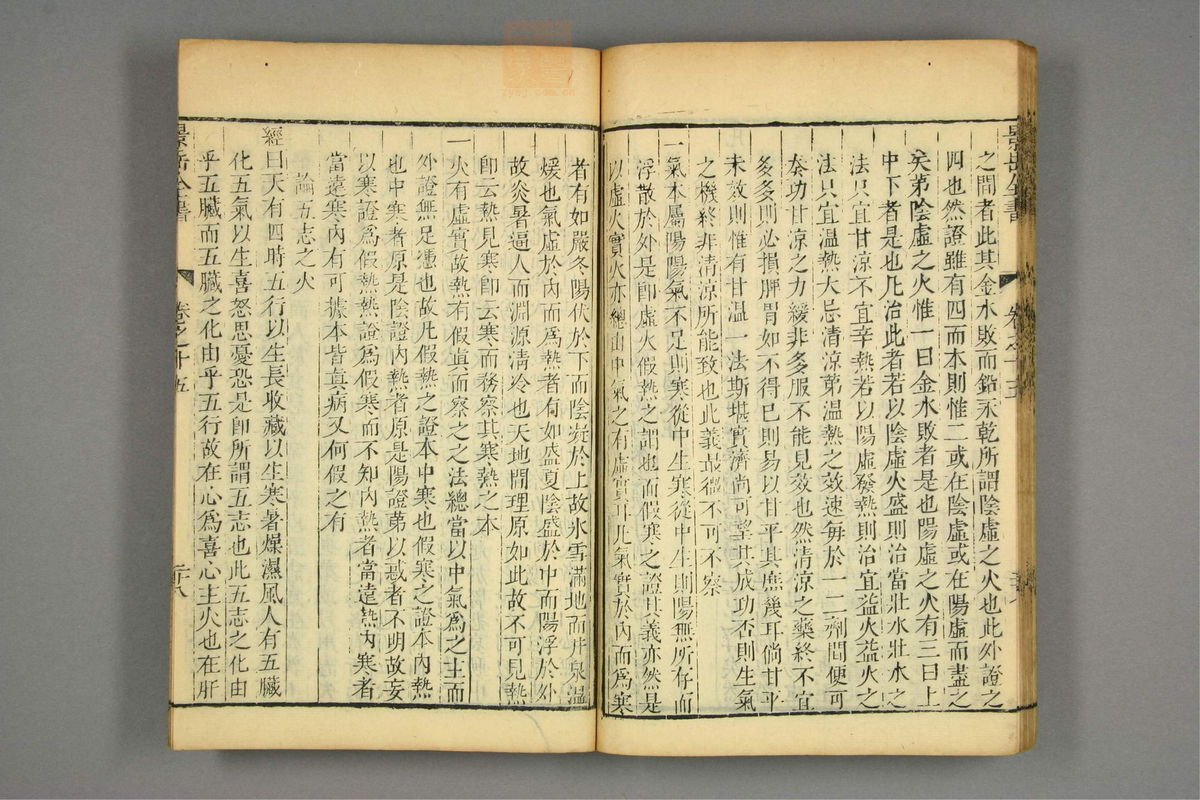 景岳全書
卷之十五
之間者此其金水敗而鉛汞乾所謂陰虛之火也此外證之
四也然證雖有四而本則惟二或在陰虛或在陽虛而盡之
矣第陰虛之火惟一曰金水敗者是也陽虛之火有三曰上
中下者是也凡治此者若以陰虛火盛則治當壯水壯水之
法只宜甘涼不宜辛熱若以陽虛發熱則治宜益火益火之
法只宜溫熱大忌清涼第溫熱之效速每於一二劑間便可
奏功甘涼之力緩非多服不能見效也然清涼之藥終不宜
多多則必損脾胃如不得已則易以甘平其庶幾耳倘甘平
未效則惟有甘溫一法斯堪實濟尚可望其成功否則生氣
之機終非清涼所能致也此義最微不可不察
一氣本屬陽陽氣不足則寒從中生寒從中生則陽無所存而
浮散於外是卽虛火假熱之謂也而假寒之證其義亦然是
以虛火實火亦總由中氣之有虛實耳凡氣實於內而爲寒
者有如嚴冬陽伏於下而陰凝於上故氷雪滿地而井泉溫
煖也氣虛於內而爲熱者有如盛夏陰盛於中而陽浮於外
故炎暑逼人而淵源清冷也天地間理原如此故不可見熱
卽云熱見寒卽云寒而務察其寒熱之本
一火有虛實故熱有假眞而察之之法總當以中氣爲之主而
外證無足憑也故凡假熱之證本中寒也假寒之證本內熱
也中寒者原是陰證內熱者原是陽證第以惑者不明故妄
以寒證爲假熱熱證爲假寒而不知內熱者當遠熱內寒者
當遠寒內有可據本皆眞病又何假之有
論五志之火
經曰天有四時五行以生長收藏以生寒暑燥濕風人有五臟
化五氣以生喜怒思憂恐是卽所謂五志也此五志之化由
乎五臟而五臟之化由乎五行故在心爲喜心主火也在肝
景岳全書
卷之十五
二十八